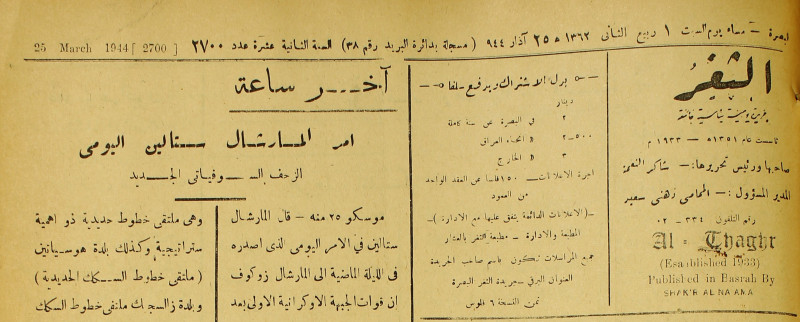 البصرة — مساء يوم السبت ١ ربيع الثاني ١٣٦٣ هـ ٢٥ آذار ٩٤٤ ( مسجلة بدائرة البريد رقم ٣٨ ) السنة الثانية عشرة عدد ٢٧٠٠ 25 March 1944 [ 2700 ]
الثغر
جريدة يومية سياسية جامعة
تأسست عام ١٣٥١ هـ — ١٩٣٣ م
صاحبها ورئيس تحريرها :— شاكر النعمة
المدير المسؤول :— المحامي ذهني سعيد
رقم التلفون ٣٣٤ — ٠٢
Al - Thaghr
(Esablished 1933)
Published in Basrah By
SHAKIR AL NAAMA
بدل الاشتراك ويدفع سلفا
دينار
٢ في البصرة عن سنة كاملة
٥٠٠—٢ » انحاء العراق
٣ » الخارج
اجرة الاعلانات — ١٥٠ فلسا عن العقد الواحد
من العمود
—( الاعلانات الدائمة يتفق عليها مع الادارة )—
المطبعة والادارة — مطبعة الثغر بالعشار
جميع المراسلات تكون باسم صاحب الجريدة
العنوان البرقي — جريدة الثغر البصرة
ثمن النسخة ٦ فلوس
آخر ساعة
امر المارشال ستالين اليومى
الزحف السوفياتى الجديد
موسكو ٢٥ منه — قال المارشال
ستالين فى الامر اليومى الذى اصدره
فى الليلة الماضية الى المارشال زوكوف
ان قوات الجبهة الاوكرانية الاولى بعد
وهى ملتقى خطوط حديدية ذو اهمية
ستراتيجية وكذلك بلدة هوسياتين
( ملتقى خطوط السكك الحديدية )
وبلدة زالسجك ملتقى خطوط السكك